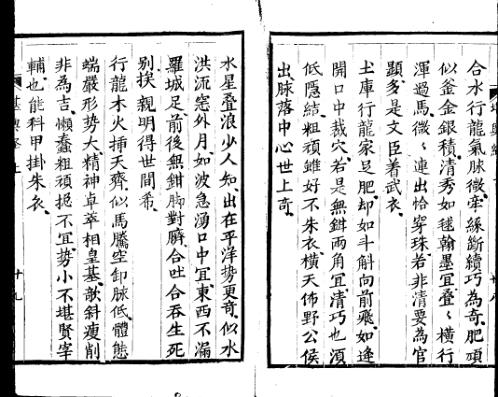 合水行龍氣脉微牽線斷續巧為奇肥頑
似釜金銀積清秀如毬翰墨宜疊〻橫行
渾過馬微〻連出恰穿珠若非清要為官
顯多是文臣着武衣
土庫行龍家足肥却如斗斛向前飛如逢
開口中裁穴若是無鉗兩角宜清巧也須
低隱結粗頑雖好不朱衣橫天佈野公侯
出脉落中心世上奇
水星疊浪少人知出在平洋勢更奇似水
洪流窓外月如波急湧口中宜東西不漏
羅城足前後無鉗脚對臍合吐合吞生死
別挨親明得世間希
行龍木火挿天齊似馬騰空卸脉低體態
端嚴形勢大精神卓萃相皇基欹斜瘦削
非為吉懶蠢粗頑挹不宜勢小不堪賢宰
輔也能科甲掛朱衣
堪輿 上 十九